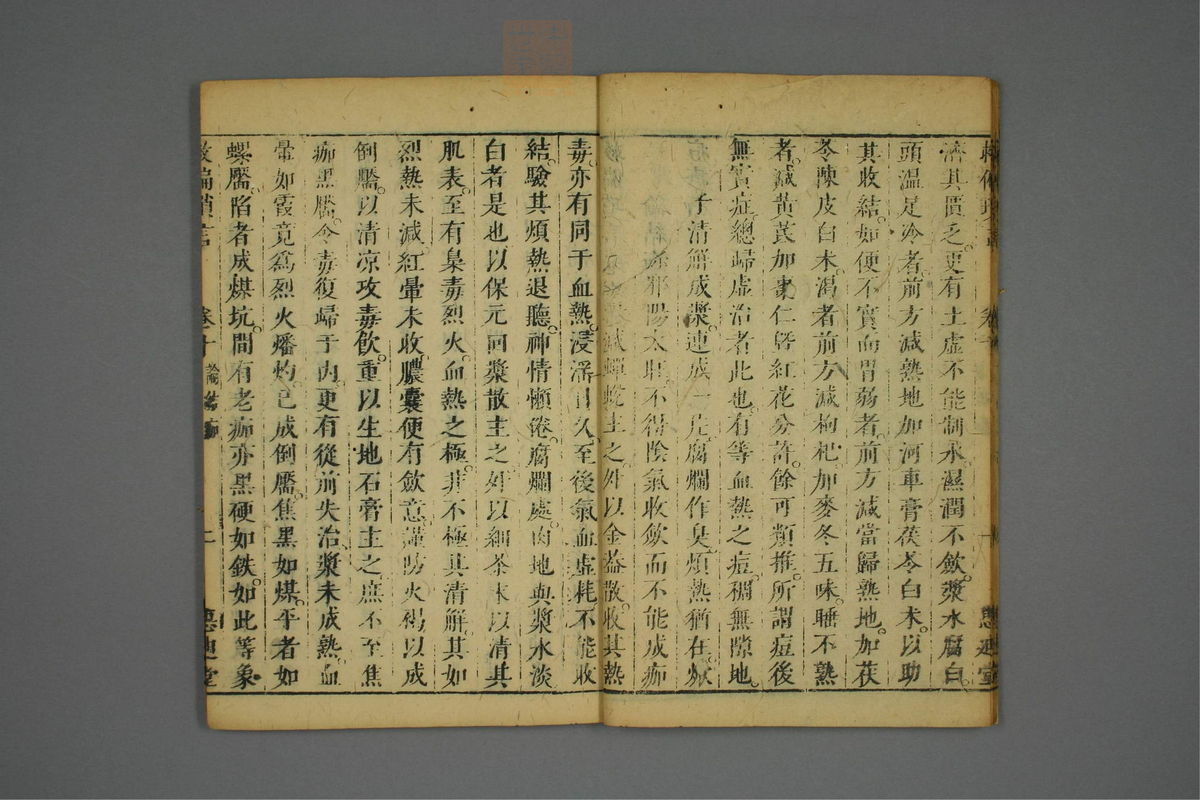 濟其匱乏更有土虛不能制水濕潤不斂漿水腐白
頭溫足冷者前方減熟地加河車膏茯苓白朮以助
其收結如便不實而胃弱者前方減當歸熟地加茯
苓陳皮白朮渴者前方減枸杞加麥冬五味睡不熟
者減黃芪加棗仁暨紅花分許餘可類推所謂痘後
無實症總歸虛治者此也有等血熱之痘稠無隙地
清解成漿連成一片腐爛作臭煩熱猶在
邪陽太旺不得陰氣收斂而不能成痂
蟬蛻主之外以金益散收其熱
毒亦有同于血熱浸淫日久至後氣血虛耗不能收
結驗其煩熱退聽神情懶倦腐爛處肉地與漿水淡
白者是也以保元回漿散主之外以細茶末以清其
肌表至有梟毒烈火血熱之極非不極其清解其如
烈熱未減紅暈未收膿囊便有斂意謹防火褐以成
倒靨以清凉攻毒飲重以生地石膏主之庶不至焦
痂黑靨令毒復歸于內更有從前失治漿未成熟血
暈如霞竟爲烈火燔灼已成倒靨焦黑如煤平者如
螺靨陷者成煤坑間有老痂亦黑硬如鉄如此等象
卷十